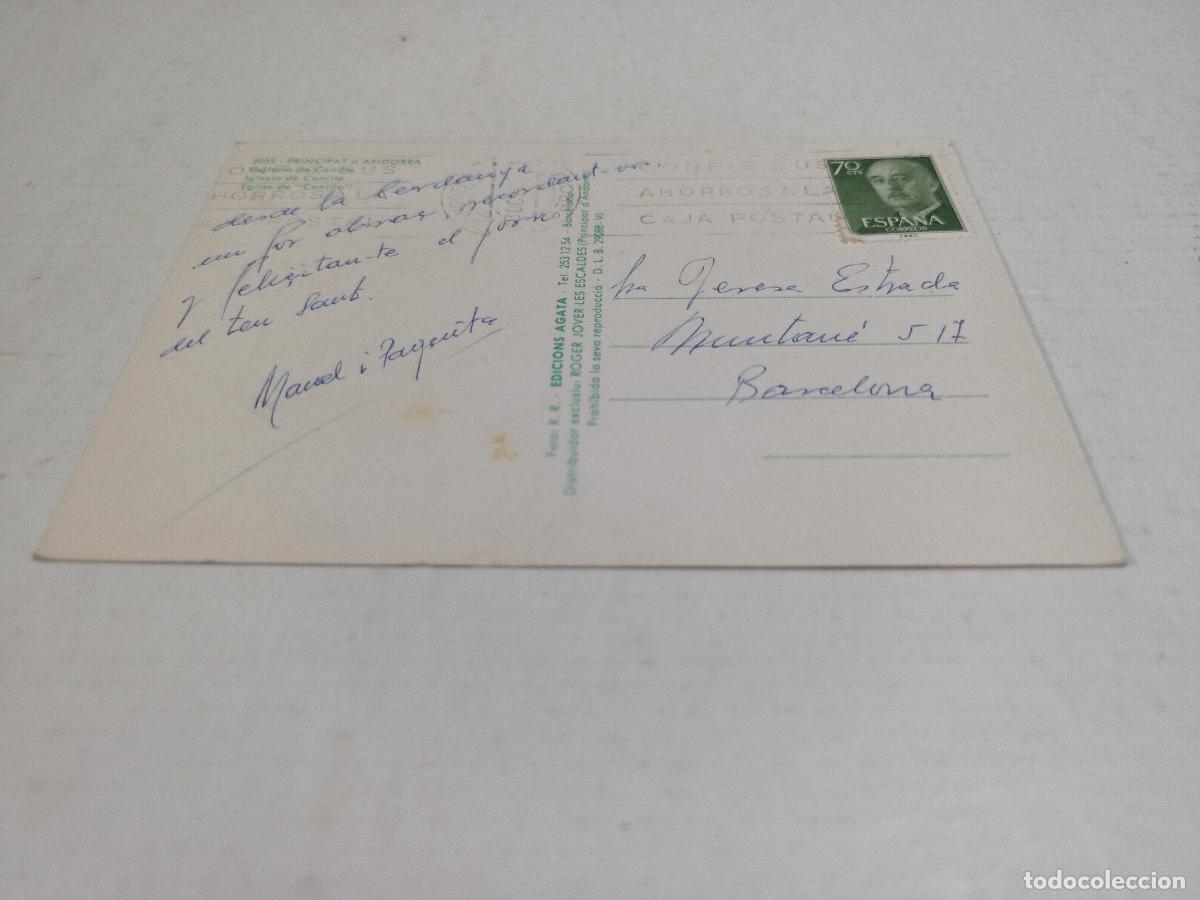 2055 - PRINCIPAT d'ANDORRA
Església de Canillo
Iglesia de Canillo
Eglise de "Canillo"
desde la Cerdanya
un for abraç recordant-vos
y felicitan-te el jorn
del teu Sant.
Manel i Paquita
Foto: R. R. - EDICIONS AGATA - Tel. 253 12 54 - Barcelona
Distribuidor exclusiu: ROGER JOVER-LES ESCALDES (Principat d'Andorra)
Prohibida la seva reproducció - D. L. B. 29088-VI
AHORROS A LA
CAJA POSTAL
70 CTS
ESPAÑA
CORREOS
Sra Teresa Estrada
Muntané 517
Barcelona
todocoleccion